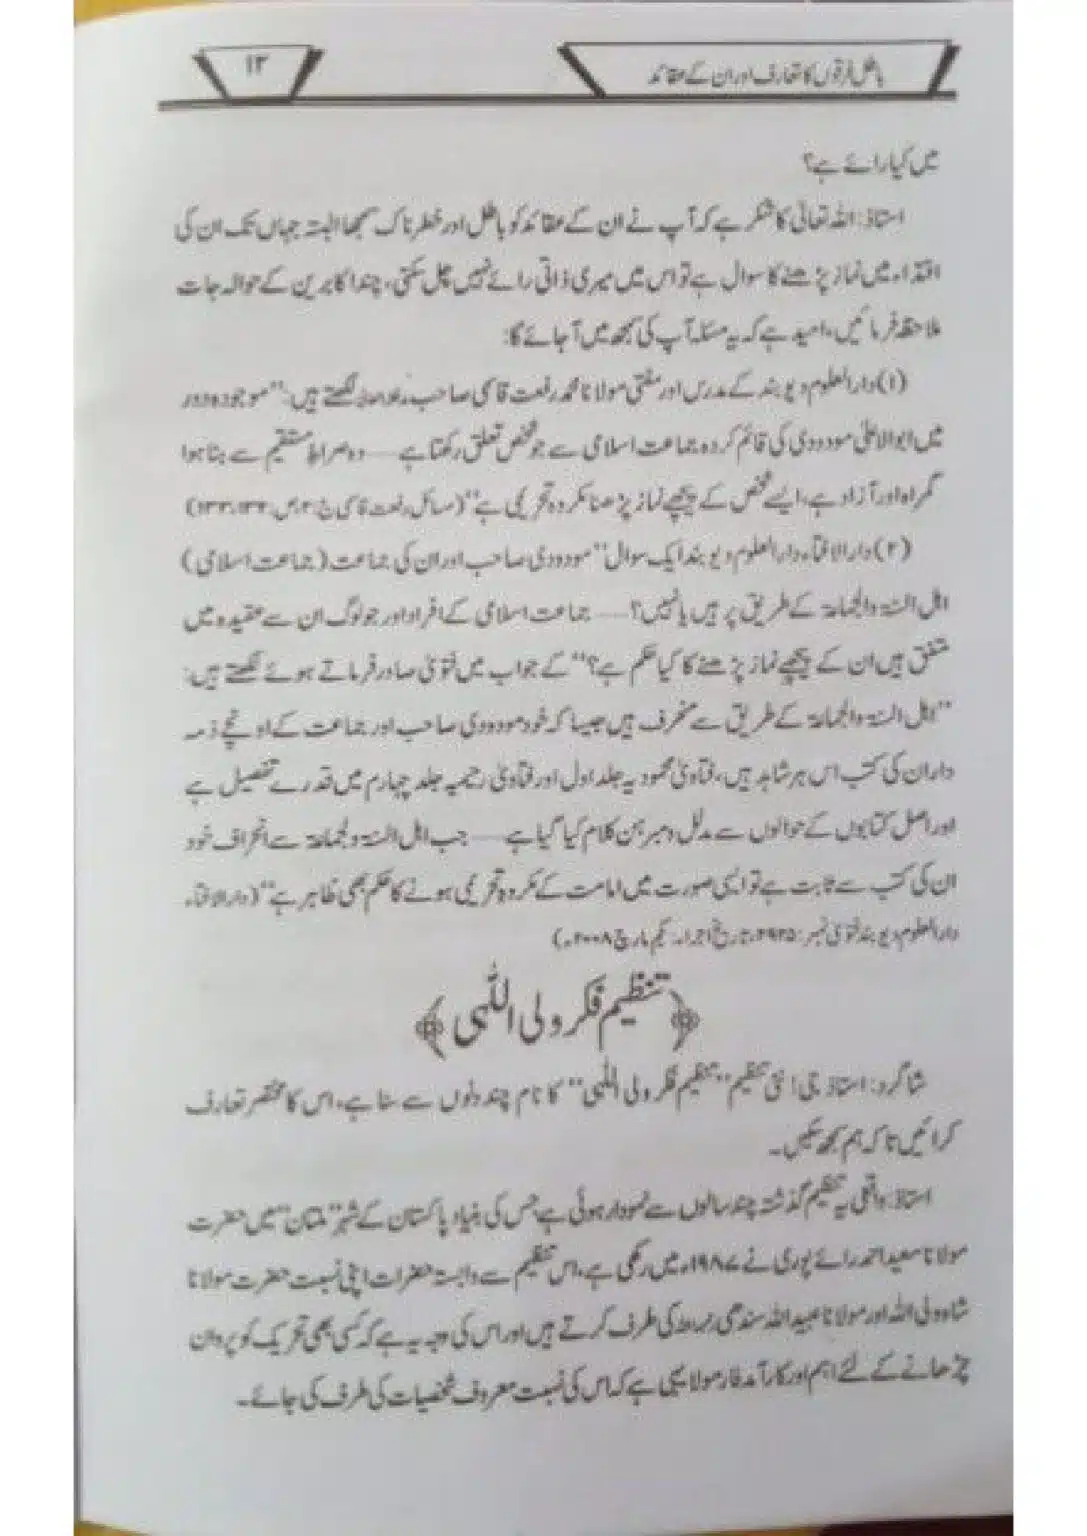 باطل فرقوں کا تعارف اور ان کے عقائد
۱۲
میں کیا رائے ہے؟
استاذ: اللہ تعالیٰ کا شکر ہے کہ آپ نے ان کے عقائد کو باطل اور خطرناک سمجھا البتہ جہاں تک ان کی
اقتداء میں نماز پڑھنے کا سوال ہے تو اس میں میری ذاتی رائے نہیں چل سکتی، چند اکابرین کے حوالہ جات
ملاحظہ فرمائیں، امید ہے کہ یہ مسئلہ آپ کی سمجھ میں آجائے گا:
(۱) دارالعلوم دیوبند کے مدرس اور مفتی مولانا محمد رفعت قاسمی صاحب لکھتے ہیں: "موجودہ دور
میں ابوالاعلیٰ مودودی کی قائم کردہ جماعت اسلامی سے جو شخص تعلق رکھتا ہے ــــ وہ صراط مستقیم سے ہٹا ہوا
گمراہ اور آزاد ہے، ایسے شخص کے پیچھے نماز پڑھنا مکروہ تحریمی ہے" (مسائل رفعت قاسمی ج:۲،ص:
(۲) دارالافتاء دارالعلوم دیوبند ایک سوال "مودودی صاحب اور ان کی جماعت (جماعت اسلامی)
اہل السنۃ والجماعۃ کے طریق پر ہیں یا نہیں؟ ــــ جماعت اسلامی کے افراد اور جو لوگ ان سے عقیدہ میں
متفق ہیں ان کے پیچھے نماز پڑھنے کا کیا حکم ہے؟" کے جواب میں فتویٰ صادر فرماتے ہوئے لکھتے ہیں:
"اہل السنۃ والجماعۃ کے طریق سے منحرف ہیں جیسا کہ خود مودودی صاحب اور جماعت کے اونچے ذمہ
داران کی کتب اس پر شاہد ہیں، فتاویٰ محمودیہ جلد اول اور فتاویٰ رحیمیہ جلد چہارم میں قدرے تفصیل ہے
اور اصل کتابوں کے حوالوں سے مدلل ومبرہن کلام کیا گیا ہے ــــ جب اہل السنۃ والجماعۃ سے انحراف خود
ان کی کتب سے ثابت ہے تو ایسی صورت میں امامت کے مکروہ تحریمی ہونے کا حکم بھی ظاہر ہے" (دارالافتاء
دارالعلوم دیوبند فتویٰ نمبر: تاریخ اجراء: یکم مارچ ۲۰۰۸ء)
﴿تنظیم فکر ولی اللّٰہی﴾
شاگرد: استاذ جی! نئی تنظیم "تنظیم فکر ولی اللّٰہی" کا نام چند دنوں سے سنا ہے، اس کا مختصر تعارف
کرائیں تاکہ ہم سمجھ سکیں۔
استاذ: واقعی یہ تنظیم گذشتہ چند سالوں سے نمودار ہوئی ہے، جس کی بنیاد پاکستان کے شہر "ملتان" میں حضرت
مولانا سعید احمد رائے پوری نے ۱۹۸۷ء میں رکھی ہے، اس تنظیم سے وابستہ حضرات اپنی نسبت حضرت مولانا
شاہ ولی اللہ اور مولانا عبید اللہ سندھی کی طرف کرتے ہیں اور اس کی وجہ یہ ہے کہ کسی بھی تحریک کو پروان
چڑھانے کے لئے اہم اور کارآمد فارمولا یہی ہے کہ اس کی نسبت معروف شخصیات کی طرف کی جائے۔